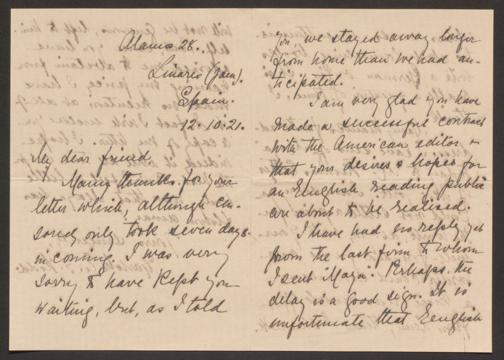 Alamo 28.
Linares (Jaen).
Spain.
12.10.21.
My dear friend
Many thanks for your
letter which, although cen-
sored, only took seven days
in coming. I was very
sorry to have kept you
waiting, but, as I told
you we stayed away longer
from home than we had an-
ticipated.
I am very glad you have
made a successful contract
with the American editor &
that your desires & hopes for
an English reading public
are about to be realised.
I have had no reply yet
from the last firm to whom
I sent Maya. Perhaps the
delay is a good sign. It is
unfortunate that English